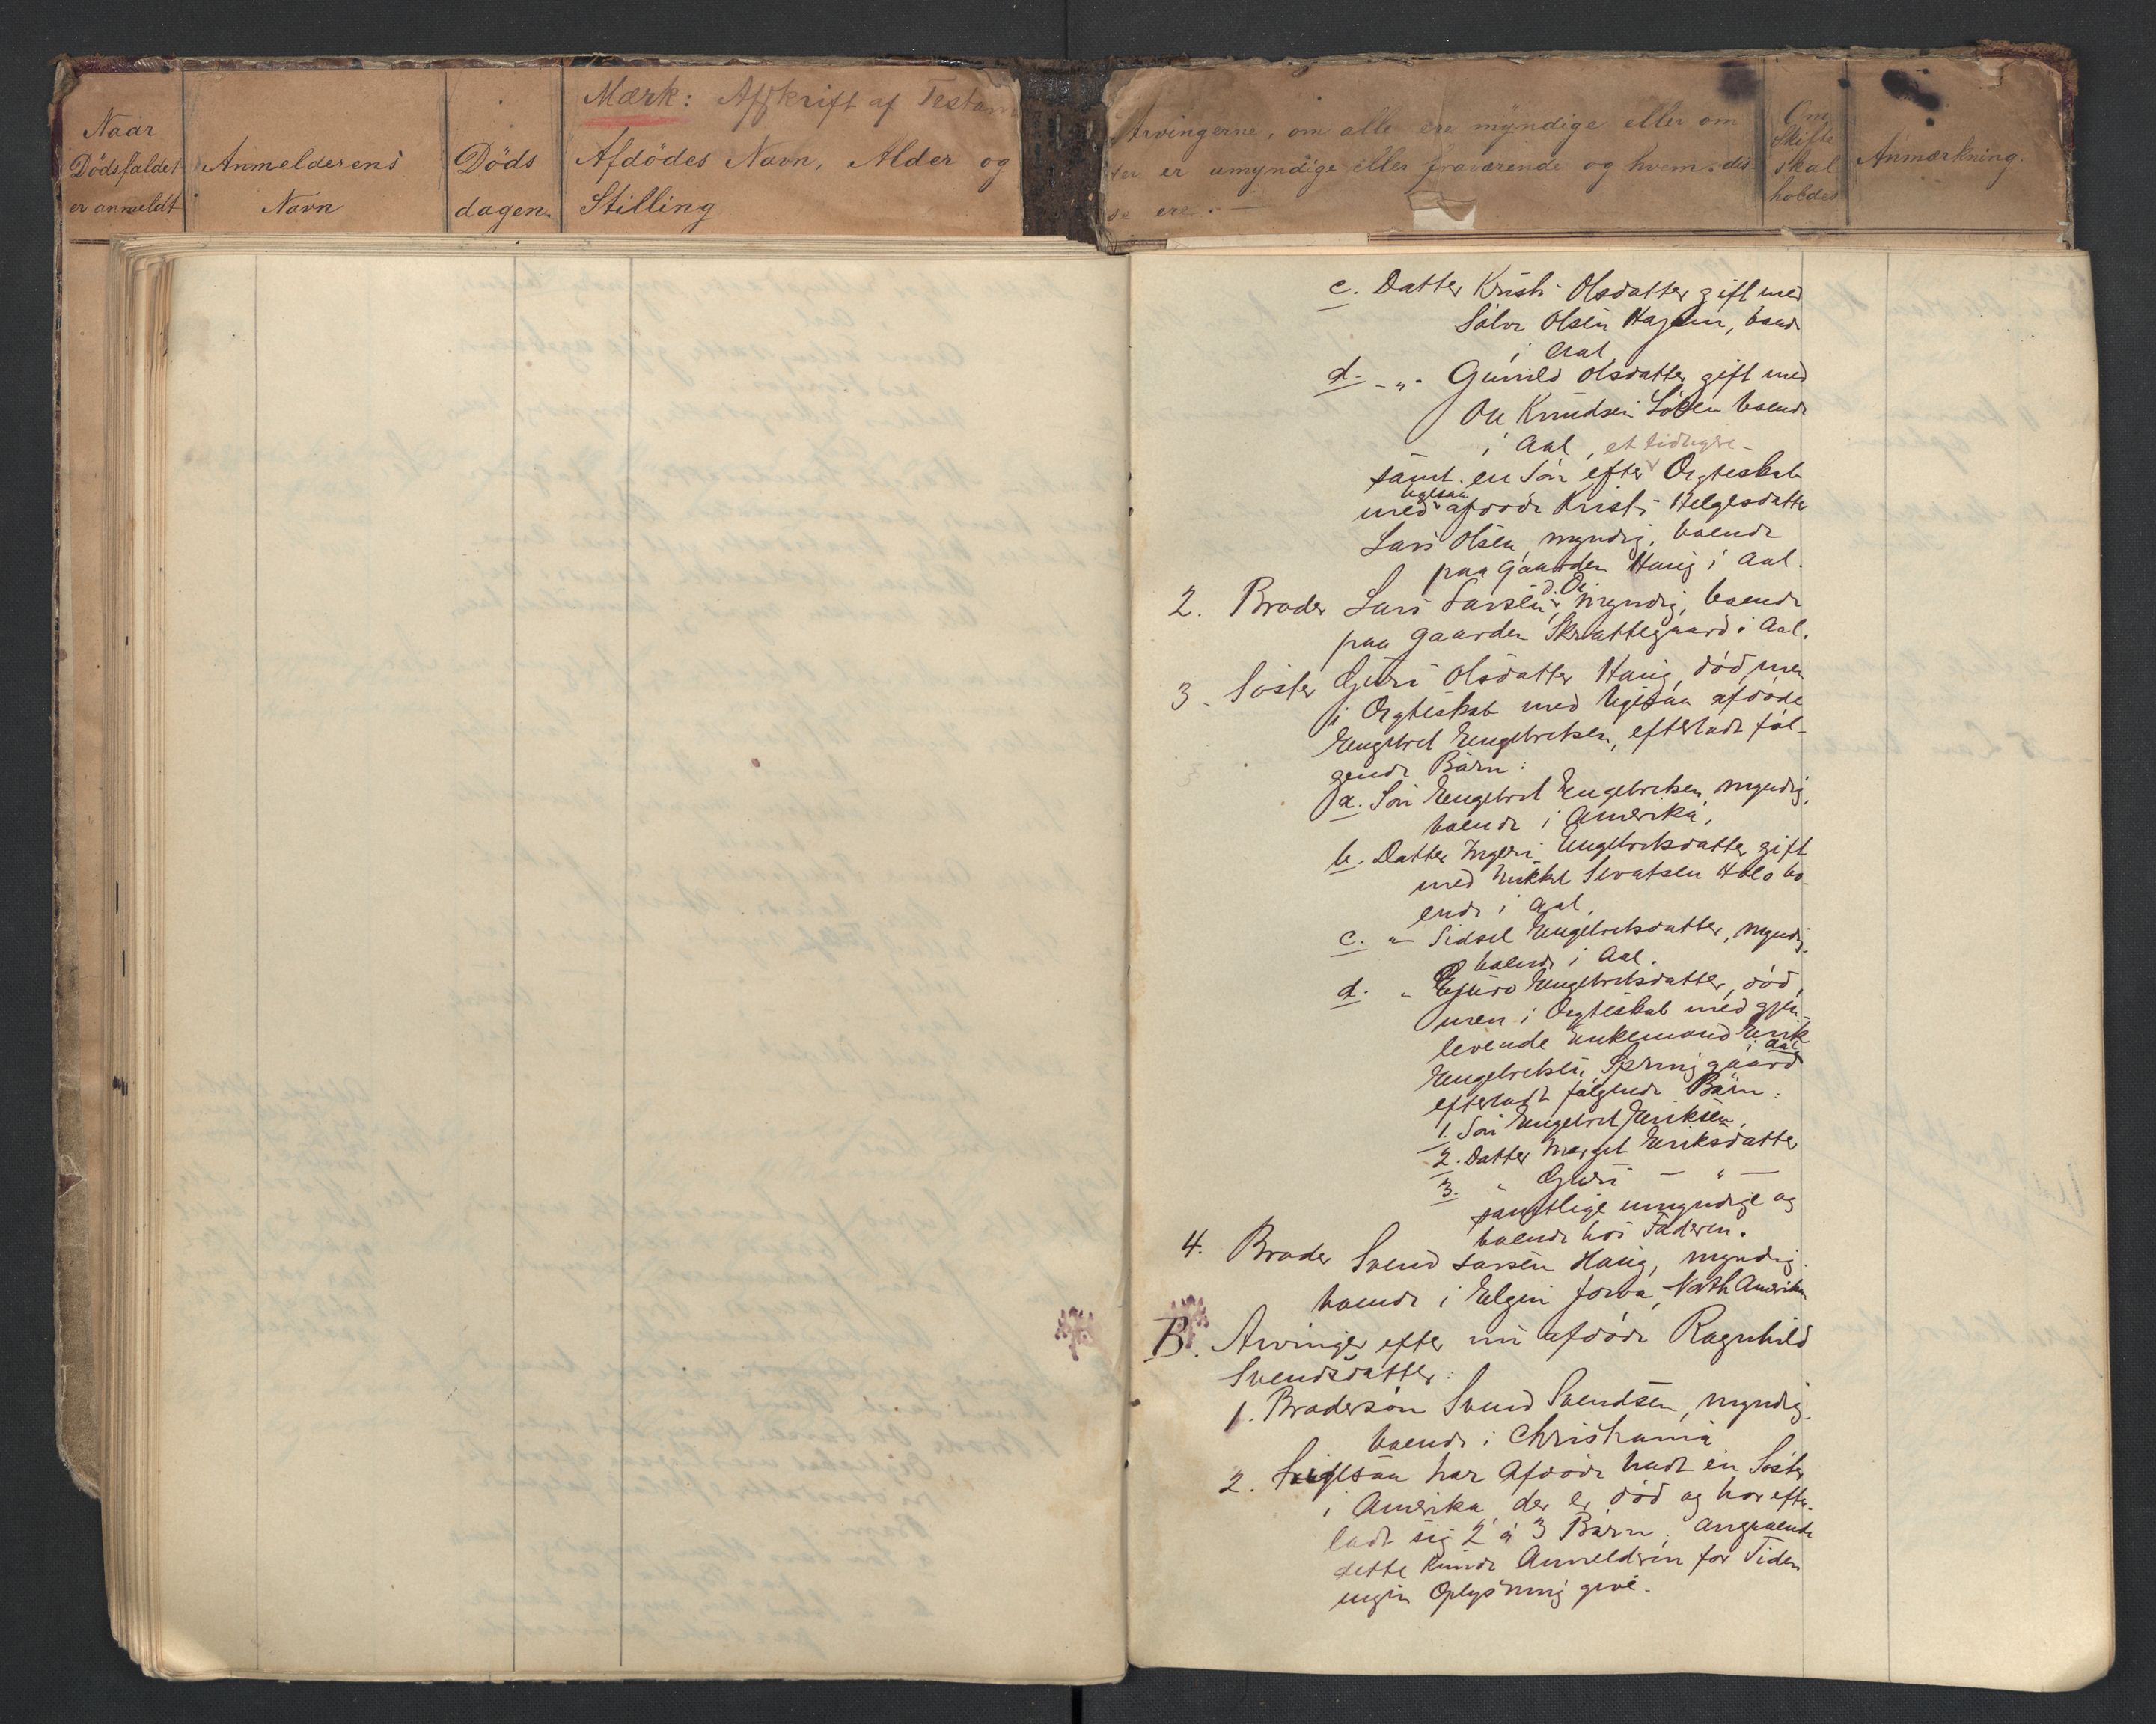 Mærk: Afskrift af Testam
Naar
Dödsfaldet
er anmeldt
Anmelderens
Navn
Döds
dagen.
Afdödes Navn, Alder og
Stilling
Arvingerne, om alle ere myndige eller om
er umyndige eller fraværende og hvem dis-
se ere. —
Om
Skifte
skal
holdes
Anmærkning.
c. Datter Kristi Olsdatter gift med
Sølve Olsen Hagen, boende
i Aal
d. - " - Gunild Olsdatter gift med
Ole Knudsen boende
i Aal, et tidligere
samt en Søn efter Ægteskab
med ligesaa afdøde Kristi Helgesdatter
Lars Olsen, myndig, boende
paa Gaarden Haug i Aal.
2. Broder Lars Larsen d. Æ., myndig, boende
paa Gaarden Skrattegaard i Aal.
3. Søster Guri Olsdatter Haug, død, men
i Ægteskab med ligesaa afdøde
Engebret Engebretsen, efterladt føl-
gende Børn:
a. Søn Engebret Engebretsen, myndig,
boende i Amerika,
b. Datter Ingeri Engebretsdatter gift
med Mikkel Sevatsen Holo bo-
ende i Aal,
c. " Sidsel Engebretsdatter, myndig,
boende i Aal.
d. " Guro Engebretsdatter, død,
men i Ægteskab med gjen-
levende Enkemand Erik
Engebretsen Springgaard i Aal
efterladt følgende Børn:
1. Søn Engebret Eriksen,
2. Datter Margit Eriksdatter
3. " Guri — " —
samtlige umyndige og
boende hos Faderen.
4. Broder Svend Larsen Haug, myndig,
boende i Elgin Jowa, North Amerika
B. Arvinger efter nu afdøde Ragnhild
Svendsdatter:
1. Brodersøn Svend Svendsen, myndig,
boende i Christiania
2. Ligesaa har Afdøde havt en Søster
i Amerika, der er død og har efter-
ladt sig 2 à 3 Børn; angaaende
dette kunde Anmelderen for Tiden
ingen Oplysning give.